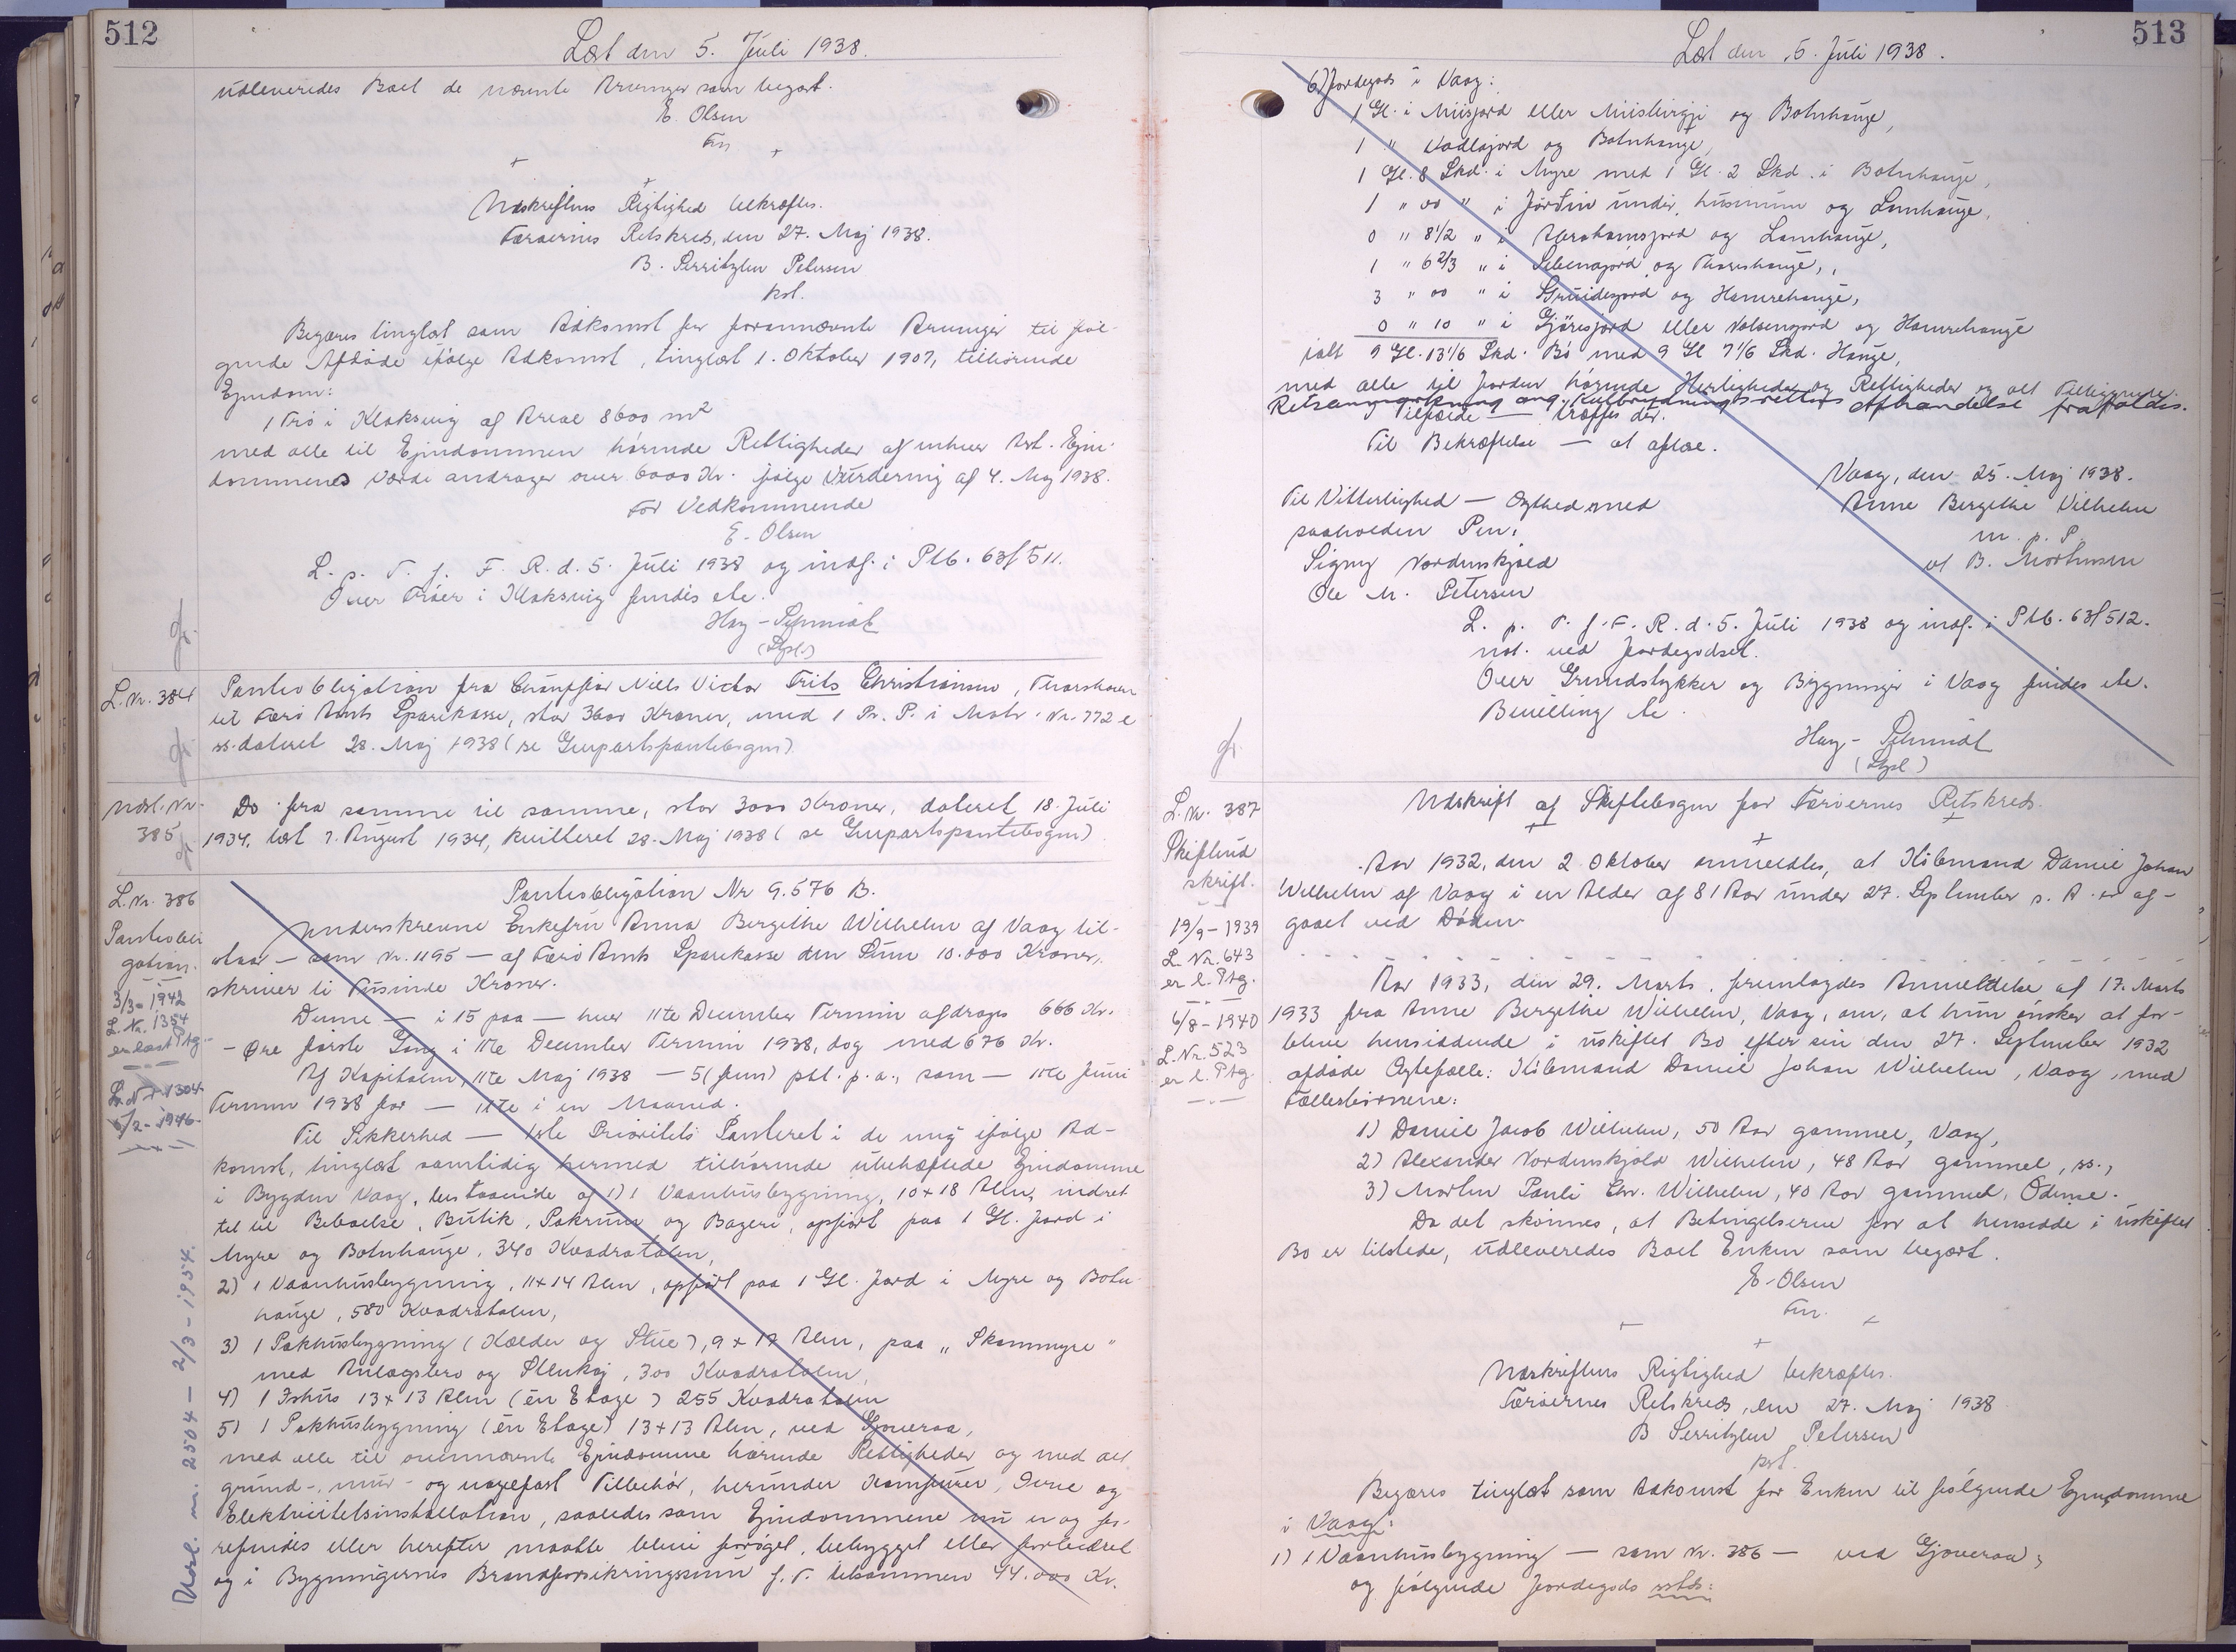 512
Læst den 5. Juli 1938.
udleveredes Boet de nævnte Arvinger som begært.
E. Olsen
Fm
Udskriftens Rigtighed bekræftes.
Færøernes Retskreds, den 27. Maj 1938.
B. Serritzlew Petersen
kst.
Begæres tinglæst som Adkomst for forannævnte Arvinger til føl-
gende Afdøde ifølge Adkomst, tinglæst 1. Oktober 1907, tilhørende
Ejendom:
1 Trø i Klaksvig af Areal 8600 m²
med alle til Ejendommen hørende Rettigheder af enhver Art. Ejen-
dommens Værdi andrager over 6000 Kr. ifølge Vurdering af 4. Maj 1938.
For Vedkommende
E. Olsen
L. p. T. f. F. R. d. 5. Juli 1938 og indf. i Ptb. 63f 511.
Over Trøer i Klaksvig findes etc.
Hay-Schmidt
(Dpl.)
L. Nr. 384
Panteobligation fra Chauffør Niels Victor Frits Christiansen, Thorshavn
til Færø Amts Sparekasse, stor 3600 Kroner, med 1 Pr. P. i Matr. Nr. 772 e
ss. dateret 28. Maj 1938 (se Genpartspantebogen)
Udsl. Nr.
385
Do fra samme til samme, stor 3000 Kroner, dateret 18. Juli
1934, læst 7. August 1934, kvitteret 28. Maj 1938 (se Genpartspantebogen)
L. Nr. 386
Panteobli
gation.
3/3-1942
L. Nr. 1354
er læst Ptg.
L. Nr 1304
6/2-1946.
Udsl. nr. 2504 - 2/3-1954.
Panteobligation Nr 9.576 B.
Underskrevne Enkefru Anna Bergithe Wilhelm af Vaag til-
staar — som Nr. 1195 — af Færø Amts Sparekasse den Sum 10.000 Kroner,
skriver ti Tusinde Kroner.
Denne — i 15 paa — hver 11te December Termin afdrages 666 Kr.
- Øre første Gang i 11te December Termin 1938, dog med 676 Kr.
Af Kapitalen, 11te Maj 1938 — 5 (fem) pCt. p. a., som — 11te Juni
Termin 1938 for — 11te i en Maaned.
Til Sikkerhed — 1ste Prioritets Panteret i de mig ifølge Ad-
komst, tinglæst samtidig hermed tilhørende ubehæftede Ejendomme
i Bygden Vaag, bestaaende af 1) 1 Vaanhusbygning, 10 x 18 Alen, indret
tet til Beboelse, Butik, Pakrum og Bageri, opført paa 1 Gl. Jord i
Myre og Botnhauge, 340 Kvadratalen,
2) 1 Vaanhusbygning, 11 x 14 Alen, opført paa 1 Gl. Jord i Myre og Botn-
hauge, 580 Kvadratalen,
3) 1 Pakhusbygning (Kælder og Stue), 9 x 17 Alen, paa „Skammyre"
med Anlægsbro og Stenkaj, 300 Kvadratalen,
4) 1 Ishus 13 x 13 Alen (én Etage) 255 Kvadratalen
5) 1 Pakhusbygning (én Etage) 13 x 13 Alen, ved Gjoveraa,
med alle til ovennævnte Ejendomme hørende Rettigheder og med alt
grund-, mur- og nagelfast Tilbehør, herunder Komfurer, Ovne og
Elektricitetsinstallation, saaledes som Ejendommene nu er og for-
refindes eller herefter maatte blive forøget, bebygget eller forbedret
og i Bygningernes Brandforsikringssum f. T. tilsammen 44.000 Kr.
513
Læst den 5. Juli 1938.
6) Jordegods i Vaag:
1 Gl. i Miisjord eller Miistuigji og Botnhauge,
1 " Vadlajord og Botnhauge,
1 Gl. 8 Skd. i Myre med 1 Gl. 2 Skd. i Botnhauge,
1 " 00 " i Jørdin under husunum og Lamhauge,
0 " 8 1/2 " i Abrahamsjord og Lamhauge,
1 " 6 2/3 " i Sebenajord og Thoreshauge,
3 " 00 " i Gruidesjord og Hamrehauge,
0 " 10 " i Gjøresjord eller Valsengjord og Hamrehauge
ialt 9 Gl. 13 1/6 Skd. Bø med 9 Gl 7 1/6 Skd. Hauge,
med alle til Jorden hørende Herligheder og Rettigheder og alt Tilliggende.
Retsanmærkning ang. Kulbrydningsrettens Afhændelse frafaldes.
I Tilfælde — træffes der.
Til Bekræftelse — at aflæ.
Vaag, den 25. Maj 1938.
Anne Bergithe Vilhelm
m. p. P.
vf B. Mortensen
Til Vitterlighed — Ægthed med
paaholden Pen:
Signy Nordenskjold
Ole M. Petersen
L. p. T. f. F. R. d. 5. Juli 1938 og indf. i Ptb. 63f 512.
not. ved Jordegodset.
Over Grundstykker og Bygninger i Vaag findes etc.
Bevilling etc.
Hay-Schmidt
(Dpl.)
L. Nr. 387
Skifteud
skrift.
19/9-1939
L. Nr. 643
er l. Ptg.
6/8-1940
L. Nr. 523
er l. Ptg.
Udskrift af Skiftebogen for Færøernes Retskreds.
Aar 1932, den 2 Oktober anmeldtes, at Købmand Daniel Johan
Wilhelm af Vaag i en Alder af 81 Aar under 27. September s. A. er af-
gaaet ved Døden
Aar 1933, den 29. Marts, fremlagdes Anmeldelse af 17. Marts
1933 fra Anne Bergithe Wilhelm, Vaag, om, at hun ønsker at for-
blive hensiddende i uskiftet Bo efter sin den 27. September 1932
afdøde Ægtefælle: Købmand Daniel Johan Wilhelm, Vaag, med
Fællesbørnene:
1) Daniel Jacob Wilhelm, 50 Aar gammel, Vaag,
2) Alexander Nordenskjold Wilhelm, 48 Aar gammel, ss.,
3) Morten Pauli Chr. Wilhelm, 40 Aar gammel, Odense.
Da det skønnes, at Betingelserne for at hensidde i uskiftet
Bo er tilstede, udleveredes Boet Enken som begært.
E. Olsen
Fm.
Udskriftens Rigtighed bekræftes.
Færøernes Retskreds, den 27. Maj 1938
B Serritzlew Petersen
kst.
Begæres tinglæst som Adkomst for Enken til følgende Ejendomme
i Vaag:
1) 1 Vaanhusbygning — som Nr. 386 — ved Gjoveraa;
og følgende Jordegods sstds: